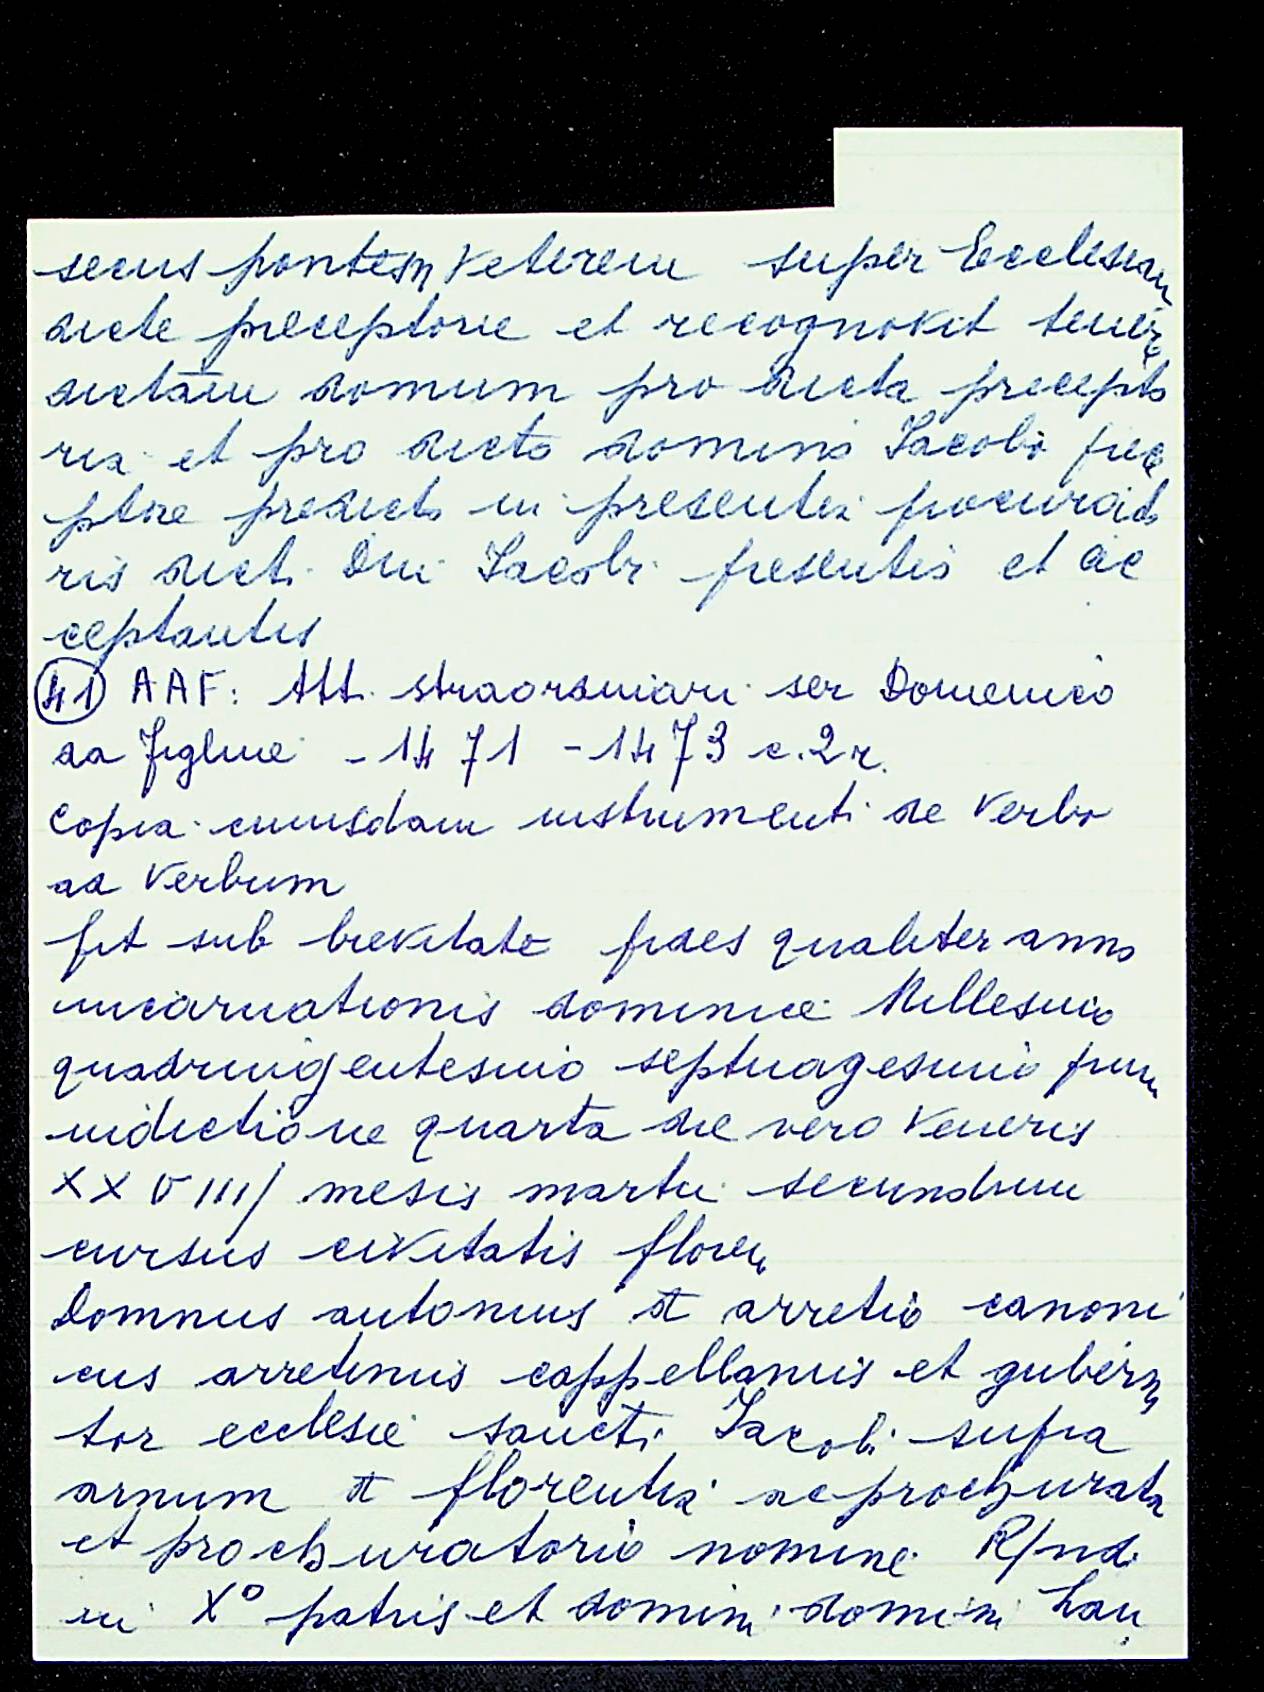 secus pontem Veterem super Ecclesiam
dicte preceptorie et recognovit tenere
dictam domum pro dicta precepto
ria et pro dicto domino Iacobo prece
ptore predicto in presentia procurato
ris dicti Dni Iacobi presentis et ac
ceptantis
(41) AAF: Atti straordinari ser Domenico
da Figline - 1471 - 1473 c.2r.
Copia cuiusdam instrumenti de Verbo
ad Verbum
fit sub brevitate fides qualiter anno
incarnationis dominice Millesimo
quadringentesimo septuagesimo primo
indictione quarta die vero Veneris
XXVIII/ mesis martii secundum
cursus civitatis floren
Domnus antonius de arretio canoni
cus arretinus cappellanus et guberna
tor ecclesie sancti Iacobi supra
arnum de florentia ac prochurator
et prochuratorio nomine R/ndi
in X° patris et domini domini Lau